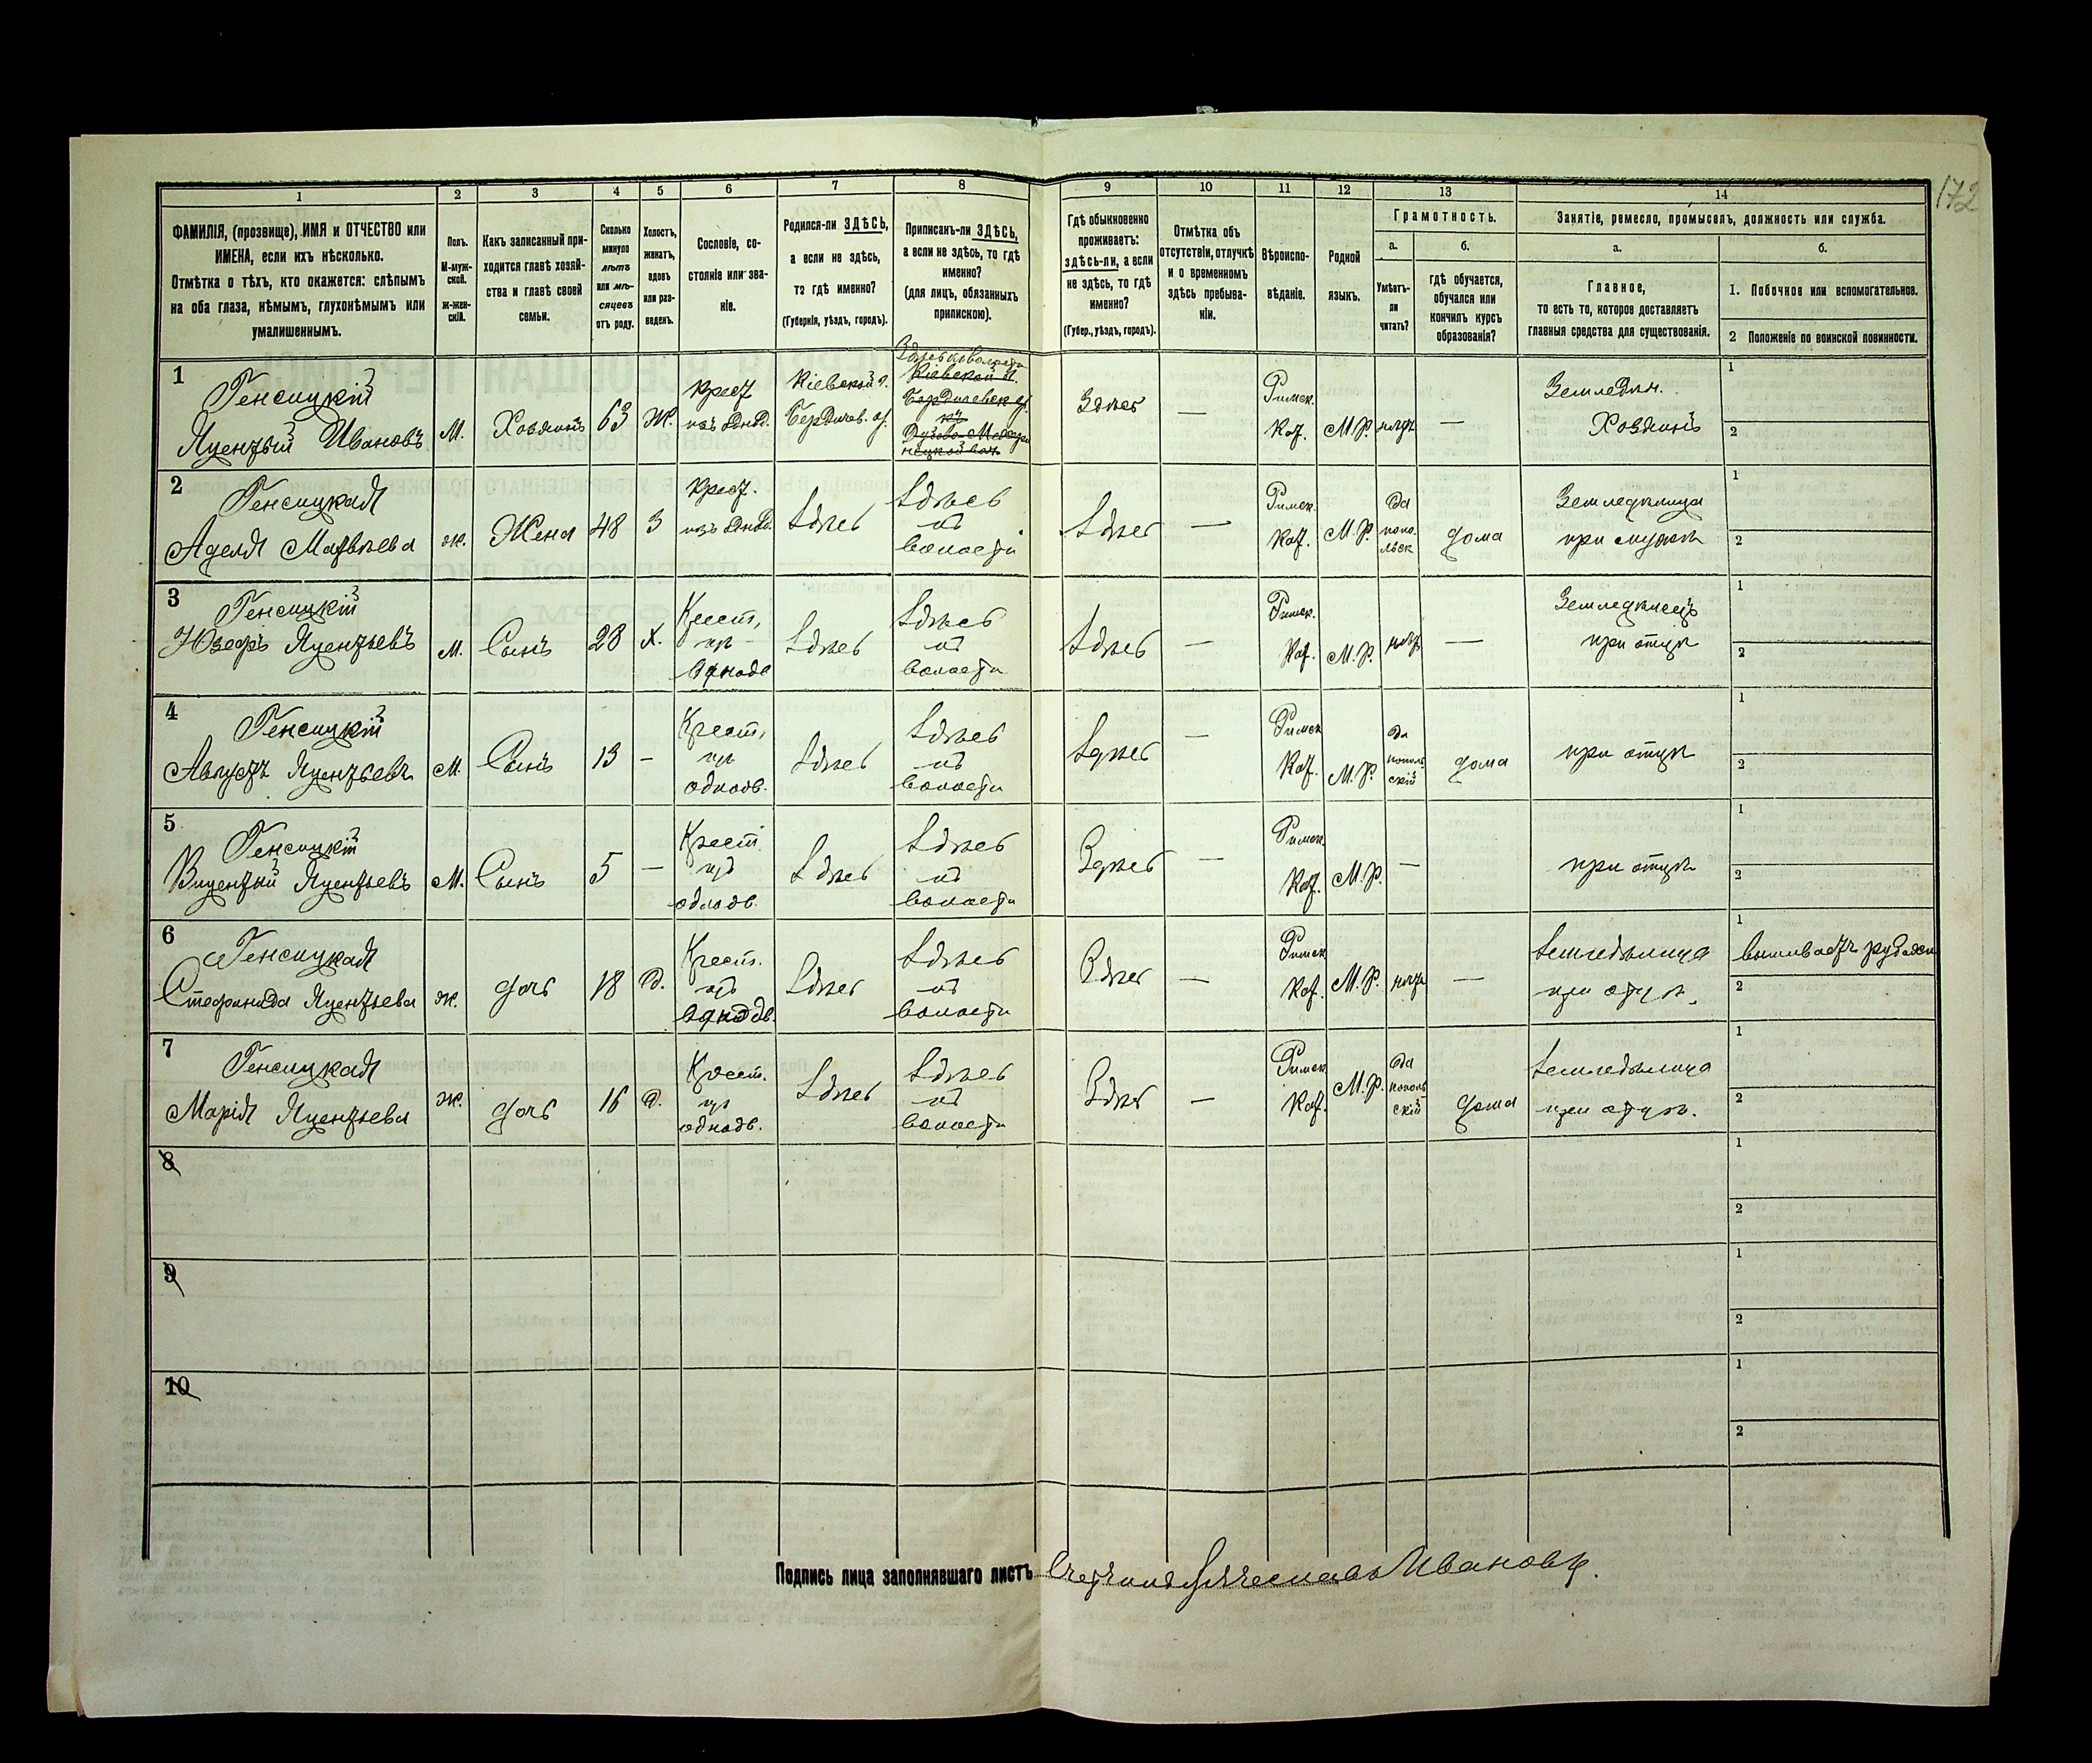 172
1 2 3 4 5 6 7 8 9 10 11 12 13 14
ФАМИЛІЯ, (прозвище), ИМЯ и ОТЧЕСТВО или
ИМЕНА, если ихъ нѣсколько.
Отмѣтка о тѣхъ, кто окажется: слѣпымъ
на оба глаза, нѣмымъ, глухонѣмымъ или
умалишеннымъ.
Полъ.
М-муж-
ской.
ж-жен-
скій.
Какъ записанный при-
ходится главѣ хозяй-
ства и главѣ своей
семьи.
Сколько
минуло
лѣтъ
или мѣ-
сяцевъ
отъ роду.
Холостъ,
женатъ,
вдовъ
или раз-
веденъ.
Сословіе, со-
стояніе или зва-
ніе.
Родился-ли ЗДѢСЬ,
а если не здѣсь,
то гдѣ именно?
(Губернія, уѣздъ, городъ).
Приписанъ-ли ЗДѢСЬ,
а если не здѣсь, то гдѣ
именно?
(для лицъ, обязанныхъ
припискою).
Гдѣ обыкновенно
проживаетъ:
здѣсь-ли, а если
не здѣсь, то гдѣ
именно?
(Губер., уѣздъ, городъ).
Отмѣтка объ
отсутствіи, отлучкѣ
и о временномъ
здѣсь пребыва-
ніи.
Вѣроиспо-
вѣданіе.
Родной
языкъ.
Грамотность.
а.
Умѣетъ-
ли
читать?
б.
гдѣ обучается,
обучался или
кончилъ курсъ
образованія?
Занятіе, ремесло, промыселъ, должность или служба.
а.
Главное,
то есть то, которое доставляетъ
главныя средства для существованія.
б.
1. Побочное или вспомогательное.
2 Положеніе по воинской повинности.
1
Генсицкій
Яцентый Ивановъ
М.
Хозяинъ
63
Ж.
Крест
изъ
Кіевской г.
Бердичев. у.
Кіевской г.
Бердичевск у.
Здѣсь
—
Римск.
Кат.
М.Р.
нѣтъ
—
Земледѣл.
Хозяинъ
1
2
2
Генсицкая
Аделя Матвѣева
ж.
Жена
48
З
Крест.
изъ
Здѣсь
Здѣсь
въ
волости
Здѣсь
—
Римск.
Кат.
М.Р.
да
по по-
льск
дома
Земледѣлица
при мужѣ
1
2
3
Генсицкій
Юзефъ Яцентьевъ
М.
Сынъ
28
Х.
Крест.
Здѣсь
Здѣсь
въ
волости
Здѣсь
—
Римск.
Кат.
М.Р.
нѣтъ
—
Земледѣлецъ
при отцѣ
1
2
4
Генсицкій
Августъ Яцентьевъ
М.
Сынъ
13
—
Крест.
изъ
однодв.
Здѣсь
Здѣсь
въ
волости
Здѣсь
—
Римск
Кат.
М.Р.
да
по поль
скій
дома
при отцѣ
1
2
5
Генсицкій
Вицентій Яцентьевъ
М.
Сынъ
5
—
Крест.
изъ
однодв.
Здѣсь
Здѣсь
въ
волости
Здѣсь
—
Римск.
Кат.
М.Р.
—
при отцѣ
1
2
6
Генсицкая
Стефанида Яцентьева
ж.
дочь
18
д.
Крест.
изъ
однодв.
Здѣсь
Здѣсь
въ
волости
Здѣсь
—
Римск
Кат.
М.Р.
нѣтъ
—
Земледѣлица
при отцѣ.
1
вышиваетъ рубахи
2
7
Генсицкая
Марія Яцентьева
ж.
дочь
16
д.
Крест.
изъ
однодв.
Здѣсь
Здѣсь
въ
волости
Здѣсь
—
Римск
Кат.
М.Р.
да
по поль
скій
дома
Земледѣлица
при отцѣ.
1
2
8
1
2
9
1
2
10
1
2
Подпись лица заполнявшаго листъ Счетчикъ Ивановъ.